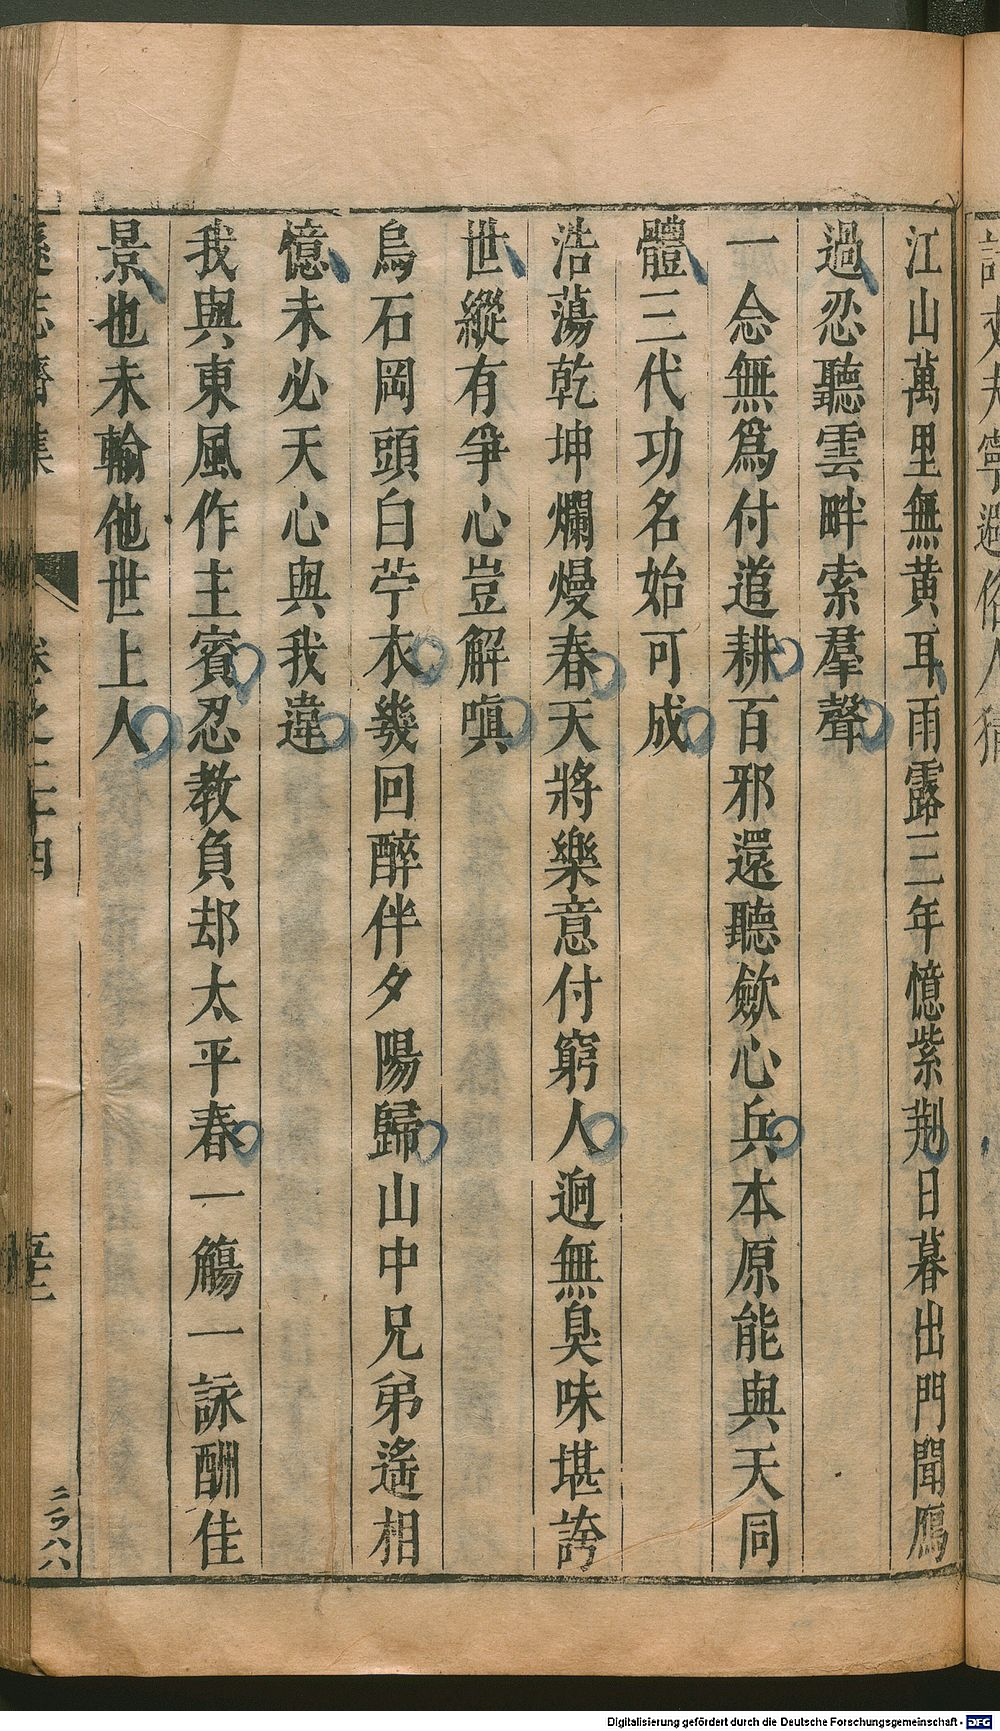 江山萬里無黃耳雨露三年憶紫荆日暮出門聞鴈
過忍聽雲畔索羣聲
一念無爲付道耕百邪還聽歛心兵本原能與天同
體三代功名始可成
浩蕩乾坤爛熳春天將樂意付窮人逈無臭味堪誇
世縱有爭心豈解嗔
烏石岡頭白苧衣幾回醉伴夕陽歸山中兄弟遙相
憶未必天心與我違
我與東風作主賓忍教負却太平春一觴一詠酬佳
景也未輸他世上人
卷之二十四
Digitalisierung gefördert durch die Deutsche Forschungsgemeinschaft - DFG